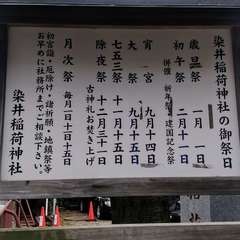 染井稲荷神社の御祭日
歳旦祭 一月一日
初午祭 二月十一日
併催 新年祭 建国記念祭
宵宮 九月十四日
大祭 九月十五日
七五三祭 十一月十五日
除夜祭 十二月三十一日
古神札お焚き上げ
月次祭 毎月一日十五日
初宮詣・厄除け・諸祈願・地鎮祭等
お早めに社務所までご相談下さい。
染井稲荷神社